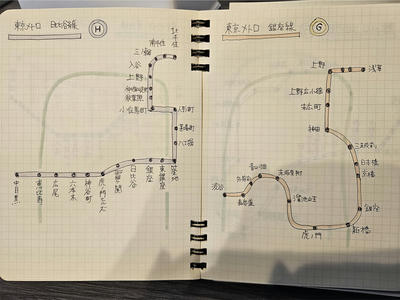 東京メトロ 日比谷線
H
北千住
南千住
三ノ輪
入谷
上野
仲御徒町
秋葉原
小伝馬町
人形町
茅場町
八丁堀
築地
東銀座
銀座
日比谷
霞ヶ関
虎ノ門ヒルズ
神谷町
六本木
広尾
恵比寿
中目黒
東京メトロ 銀座線
G
浅草
上野
上野広小路
末広町
神田
三越前
日本橋
京橋
銀座
新橋
虎ノ門
溜池山王
赤坂見附
青山一丁目
外苑前
表参道
渋谷